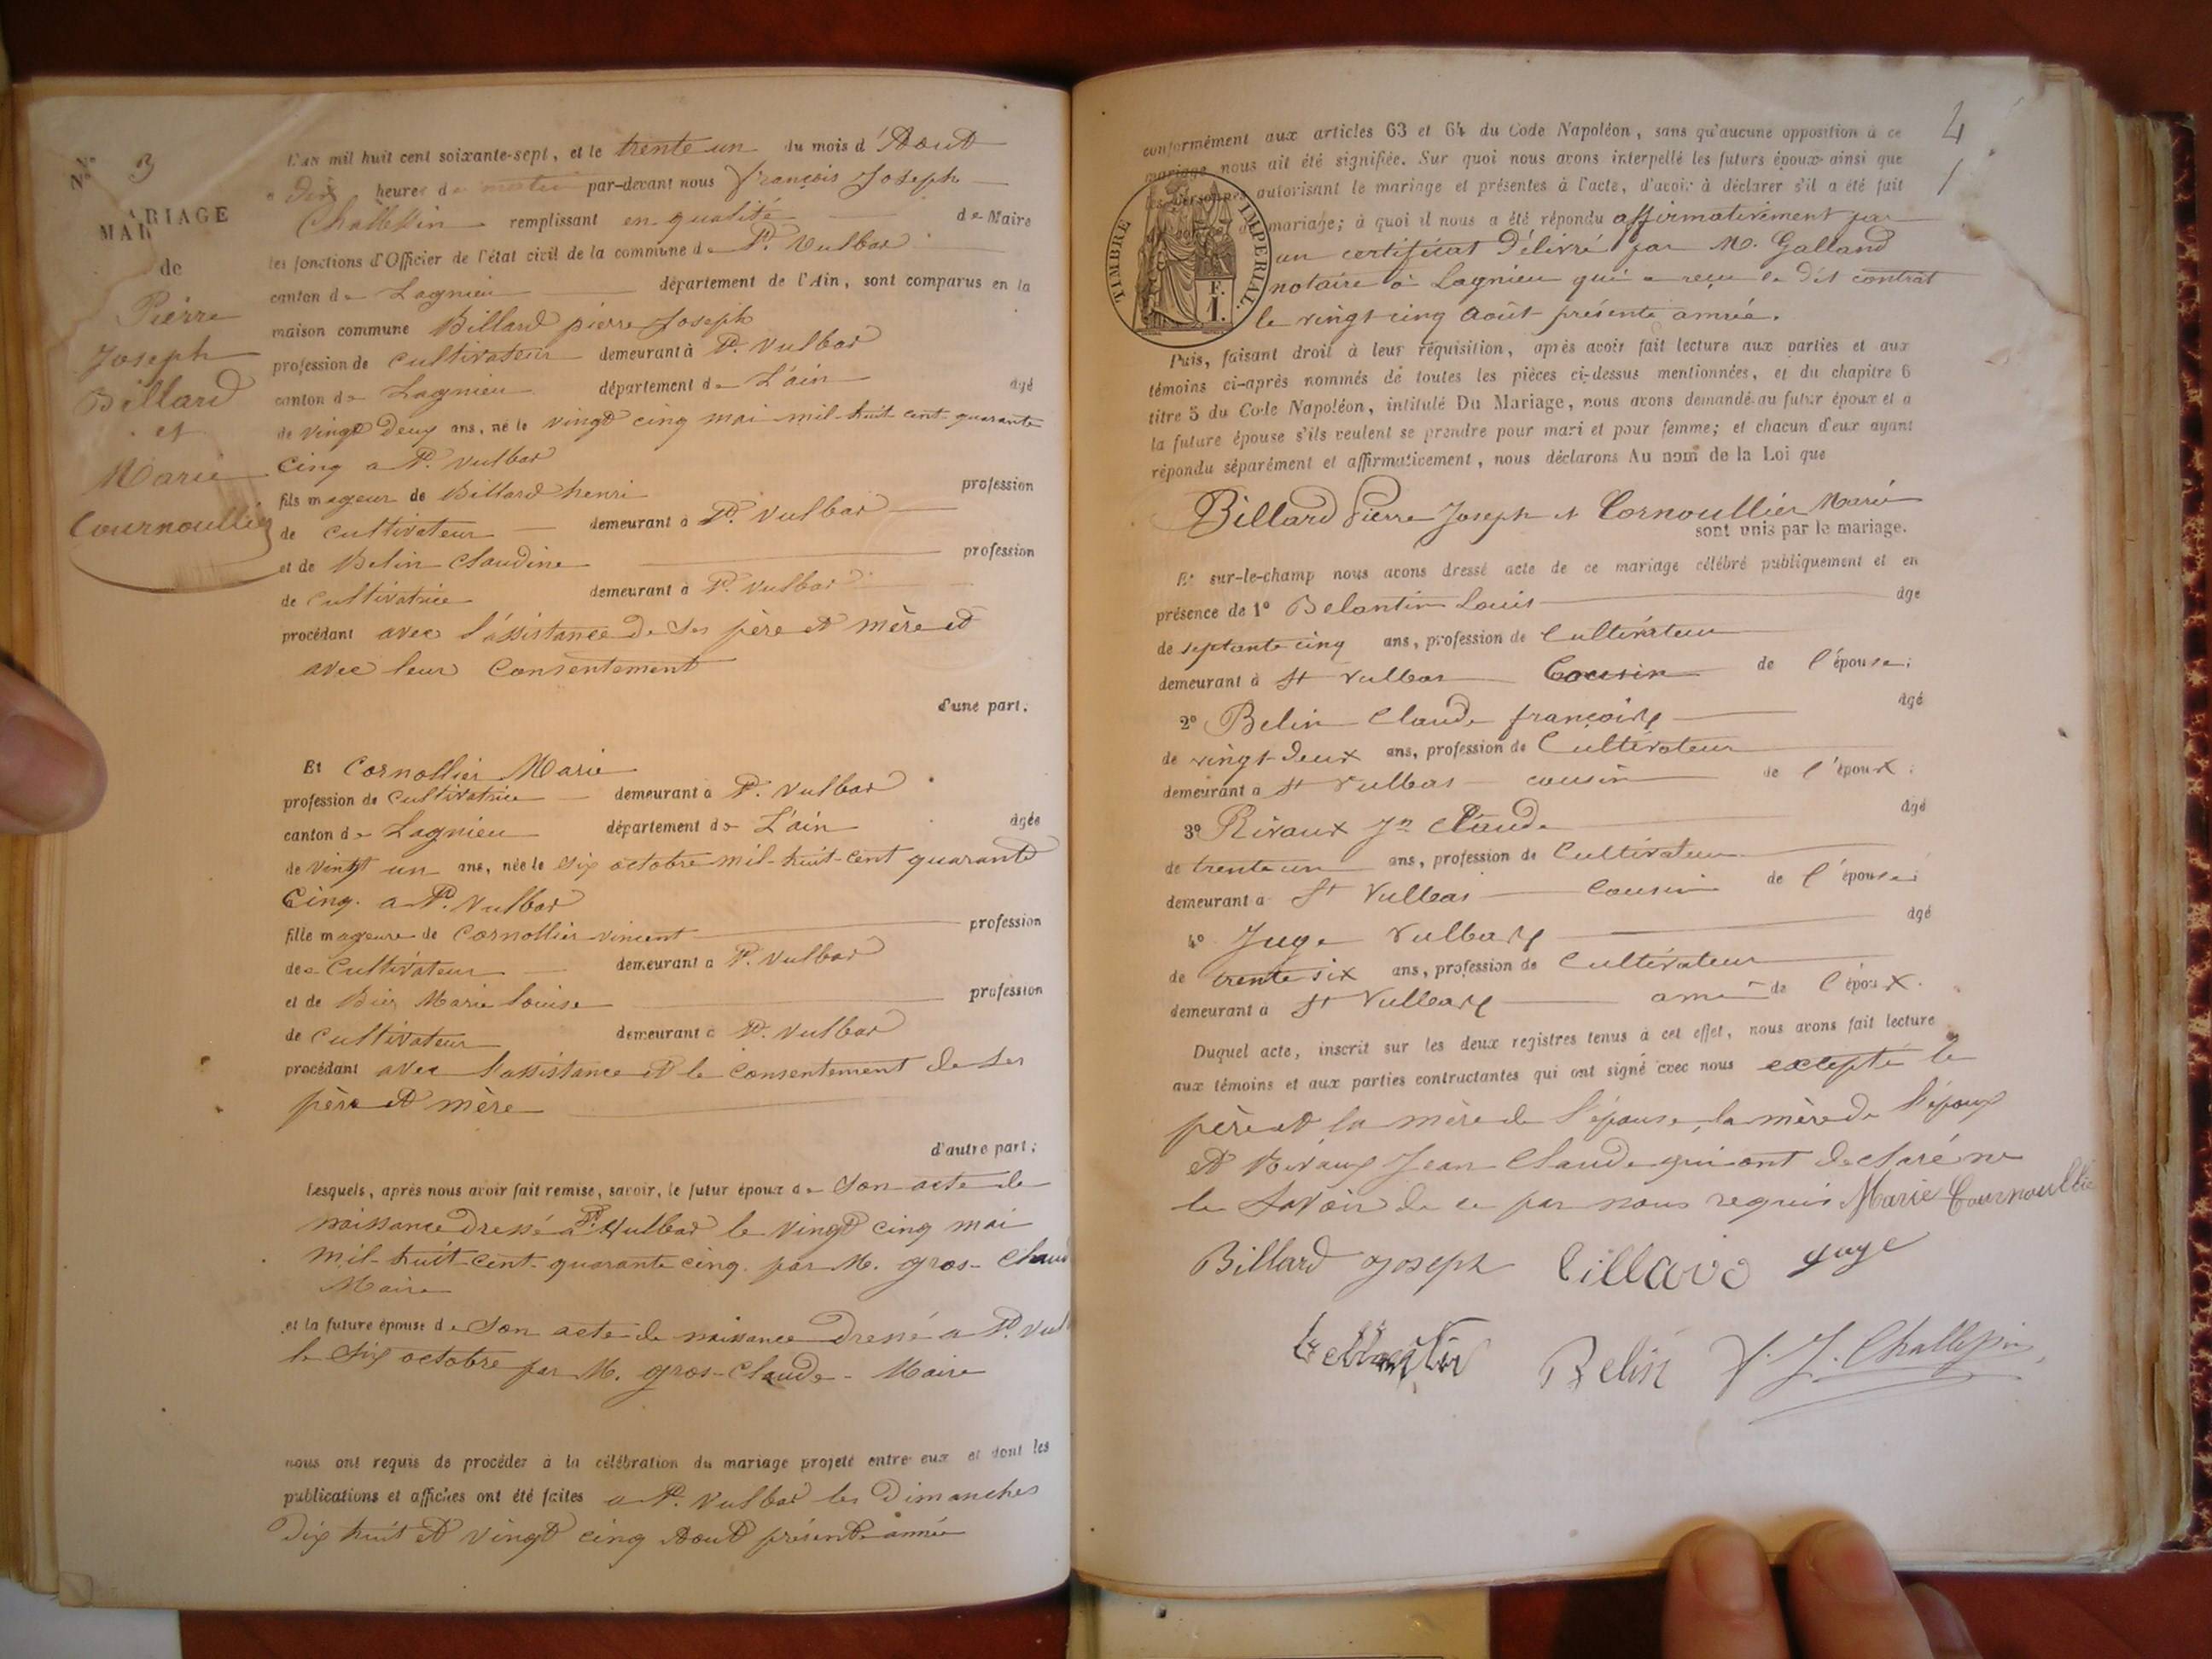 N° 3
MARIAGE
de
Pierre
Joseph
Billard
et
Marie
Cournoullier
L'an mil huit cent soixante-sept, et le trente un du mois d'Aout
a dix heures du matin par-devant nous françois Joseph
remplissant en qualité de Maire
les fonctions d'Officier de l'état civil de la commune de St. Vulbas
canton de Lagnieu département de l'Ain, sont comparus en la
maison commune Billard pierre Joseph
profession de cultivateur demeurant à St. Vulbas
canton de Lagnieu département de L'ain âgé
de vingt deux ans, né le vingt cinq mai mil huit cent quarante
cinq a St. Vulbas
fils mageur de Billard henri profession
de cultivateur demeurant à St. Vulbas
et de Belin Claudine profession
de cultivatrice demeurant à St. Vulbas
procédant avec l'assistance de ses père et mère et
avec leur Consentement
d'une part.
Et Cornollier Marie
profession de cultivatrice demeurant à St. Vulbas
canton de Lagnieu département de L'ain âgée
de vingt un ans, née le six octobre mil-huit-cent quarante
Cinq. a St. Vulbas
fille mageure de Cornollier vincent profession
de Cultivateur demeurant a St. Vulbas
et de Marie Louise profession
de Cultivateur demeurant à St. Vulbas
procédant avec l'assistance et le Consentement de ses
père et mère
d'autre part;
Lesquels, après nous avoir fait remise, savoir, le futur époux de son acte de
naissance dressé a St. Vulbas le vingt cinq mai
mil-huit-cent-quarante cinq. par M. gros-Claude
Maire
et la future épouse de son acte de naissance dressé a St. Vul
le six octobre par M. gros-Claude - Maire
nous ont requis de procéder à la célébration du mariage projeté entre eux et dont les
publications et affiches ont été faites a St. Vulbas les Dimanches
dix huit et vingt cinq Aout présente année
4
1
conformément aux articles 63 et 64 du Code Napoléon, sans qu'aucune opposition à ce
mariage nous ait été signifiée. Sur quoi nous avons interpellé les futurs époux ainsi que
les personnes autorisant le mariage et présentes à l'acte, d'avoir à déclarer s'il a été fait
mariage; à quoi il nous a été répondu affirmativement par
un certificat délivré par M. Galland
notaire à Lagnieu qui a reçu le dit contrat
le vingt-cinq Août présente année.
TIMBRE IMPERIAL.
1. F.
Puis, faisant droit à leur réquisition, après avoir fait lecture aux parties et aux
témoins ci-après nommés de toutes les pièces ci-dessus mentionnées, et du chapitre 6
titre 5 du Code Napoléon, intitulé Du Mariage, nous avons demandé au futur époux et à
la future épouse s'ils veulent se prendre pour mari et pour femme; et chacun d'eux ayant
répondu séparément et affirmativement, nous déclarons Au nom de la Loi que
Billard Pierre Joseph et Cornoullier Marie
sont unis par le mariage.
Et sur-le-champ nous avons dressé acte de ce mariage célébré publiquement et en
présence de 1° Belantin Louis âge
de septante cinq ans, profession de Cultivateur
demeurant à St Vulbas Cousin de l'épouse;
2° Belin Claude françois âgé
de vingt-deux ans, profession de Cultivateur
demeurant a St Vulbas cousin de l'époux;
3° Rivaux Jn Claude âgé
de trente un ans, profession de Cultivateur
demeurant a St Vulbas Cousin de l'épouse;
4° Juge Vulbas âgé
de trente six ans, profession de Cultivateur
demeurant à St Vulbas ami de l'époux.
Duquel acte, inscrit sur les deux registres tenus à cet effet, nous avons fait lecture
aux témoins et aux parties contractantes qui ont signé avec nous excepté le
père et la mère de l'épouse, la mère de l'époux
et Rivaux Jean Claude qui ont déclaré ne
le savoir de ce par nous requis Marie Cournoullie
Billard Joseph billard juge
Belin